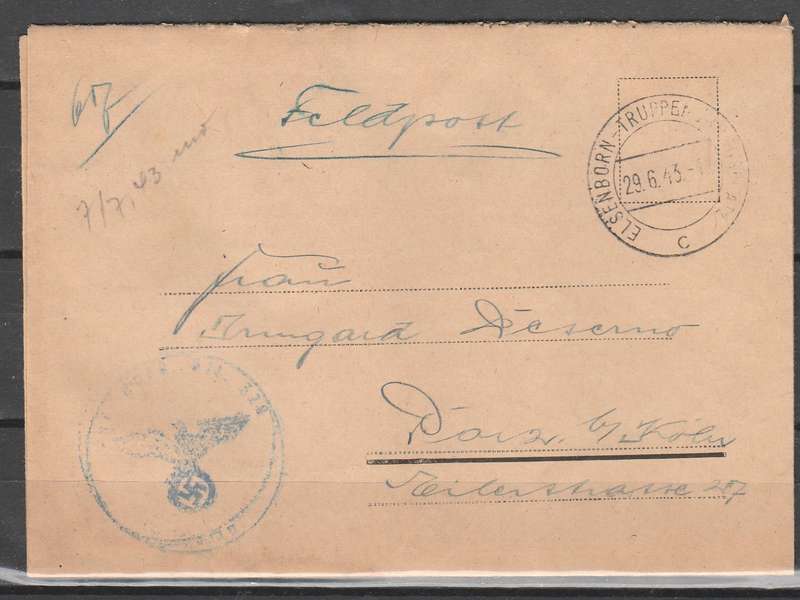 Feldpost
ELSENBORN-TRUPPEN
29.6.43.-
c
7/7.43
Frau
Irmgard Deserno
Porz b/ Köln
Eilerstrasse 27